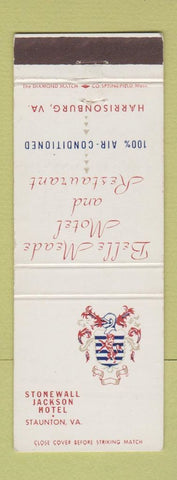 The DIAMOND MATCH CO. SPRINGFIELD, Mass.
Belle Meade
Motel
and
Restaurant
100% AIR-CONDITIONED
HARRISONBURG, VA.
STONEWALL
JACKSON
HOTEL
STAUNTON, VA.
CLOSE COVER BEFORE STRIKING MATCH